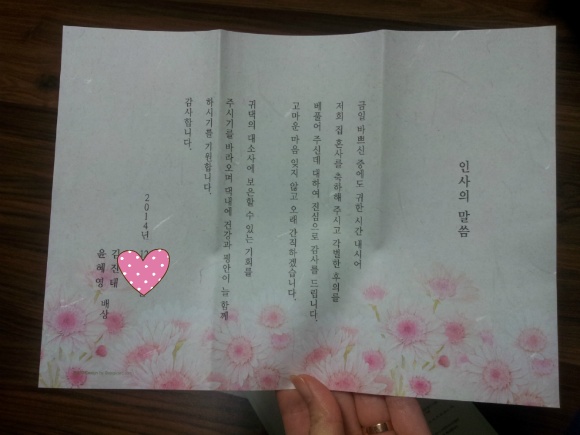 인사의 말씀
금일 바쁘신 중에도 귀한 시간 내시어
저희 집 혼사를 축하해 주시고 각별한 후의를
베풀어 주신데 대하여 진심으로 감사를 드립니다.
고마운 마음 잊지 않고 오래 간직하겠습니다.
귀댁의 대소사에 보은할 수 있는 기회를
주시기를 바라오며 댁내에 건강과 평안이 늘 함께
하시기를 기원합니다.
감사합니다.
2014년
김진태
윤혜영 배상